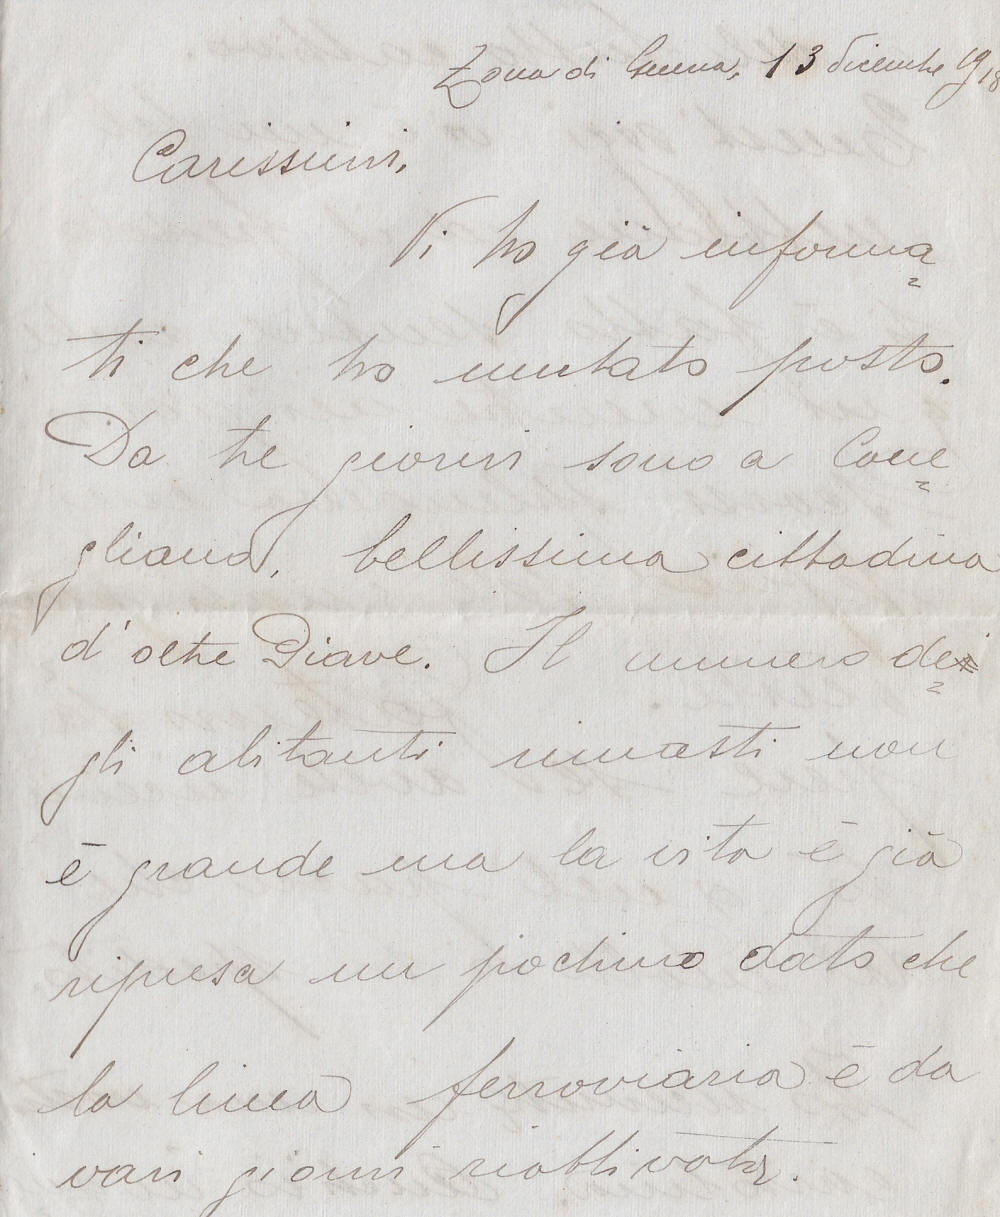 Zona di Guerra, 13 dicembre 1918
Carissimi,
Vi ho già informa=
ti che ho mutato posto.
Da tre giorni sono a Cone=
gliano, bellissima cittadina
d'oltre Piave. Il numero de=
gli abitanti rimasti non
è grande ma la vita è già
ripresa un pochino dato che
la linea ferroviaria è da
vari giorni riattivata.